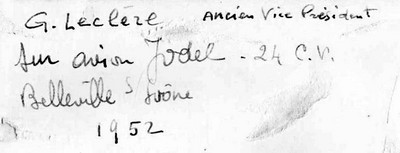 G. Leclère Ancien Vice Président
sur avion Jodel - 24 C.V.
Belleville s/ Saône
1952